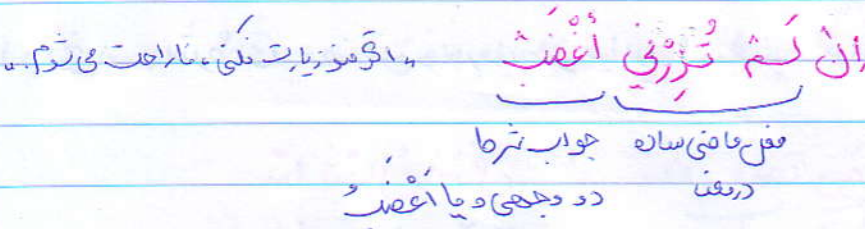 إنْ لَمْ تَزُرْني أغْضَبْ «اگر مرا زیارت نکنی، ناراحت می شوم.»
فعل ماضی ساده جواب شرط
در معنا دو وجهی و یا أغْضَبُ